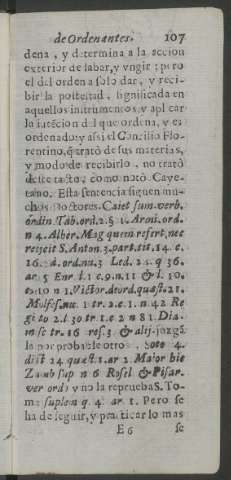 de Ordenantes. 107
dena, y determina a la accion
exterior de labar, y vngir; pero
el del orden a solo dar, y reci-
bir la potestad, significada en
aquellos instrumentos, y aplicar
la intẽcion del que ordena, y es
ordenado; y assi el Concilio Flo-
rentino, q̃ tratò de sus materias,
y modo de recibirlo, no tratò
deste tacto, como notò Caye-
tano. Esta sentencia siguen mu-
chos Doctores. Caiet sum. verb.
órdin. Tab. ord. 2. §. 1. Armi. ord.
n 4. Alber. Mag quem refert, nec
reijcit S. Anton. 3. part. tit. 14. c.
16. ord. nu. 3 Led. 2. q 36.
ar. 5 Enr. l. 1. c. 9. n. 11 & l. 10.
n 1. Victor. de ord. quæst. 21.
1. tr. 2. c. 1. n 42 Re
gi to 2. l 30 tr 1. c 2 n 81. Dia-
tr. 16 res. 3 & alij. juzgã
la por probable otros. Soto 4.
dist 24 quæst. 1. ar 2 Maior hic
Zamb sup n 6 Rosel & Pisar.
ver ord. y no la reprueba S. To-
mas suplem q. 4. ar 1. Pero se
ha de seguir, y practicar lo mas
E 6 se